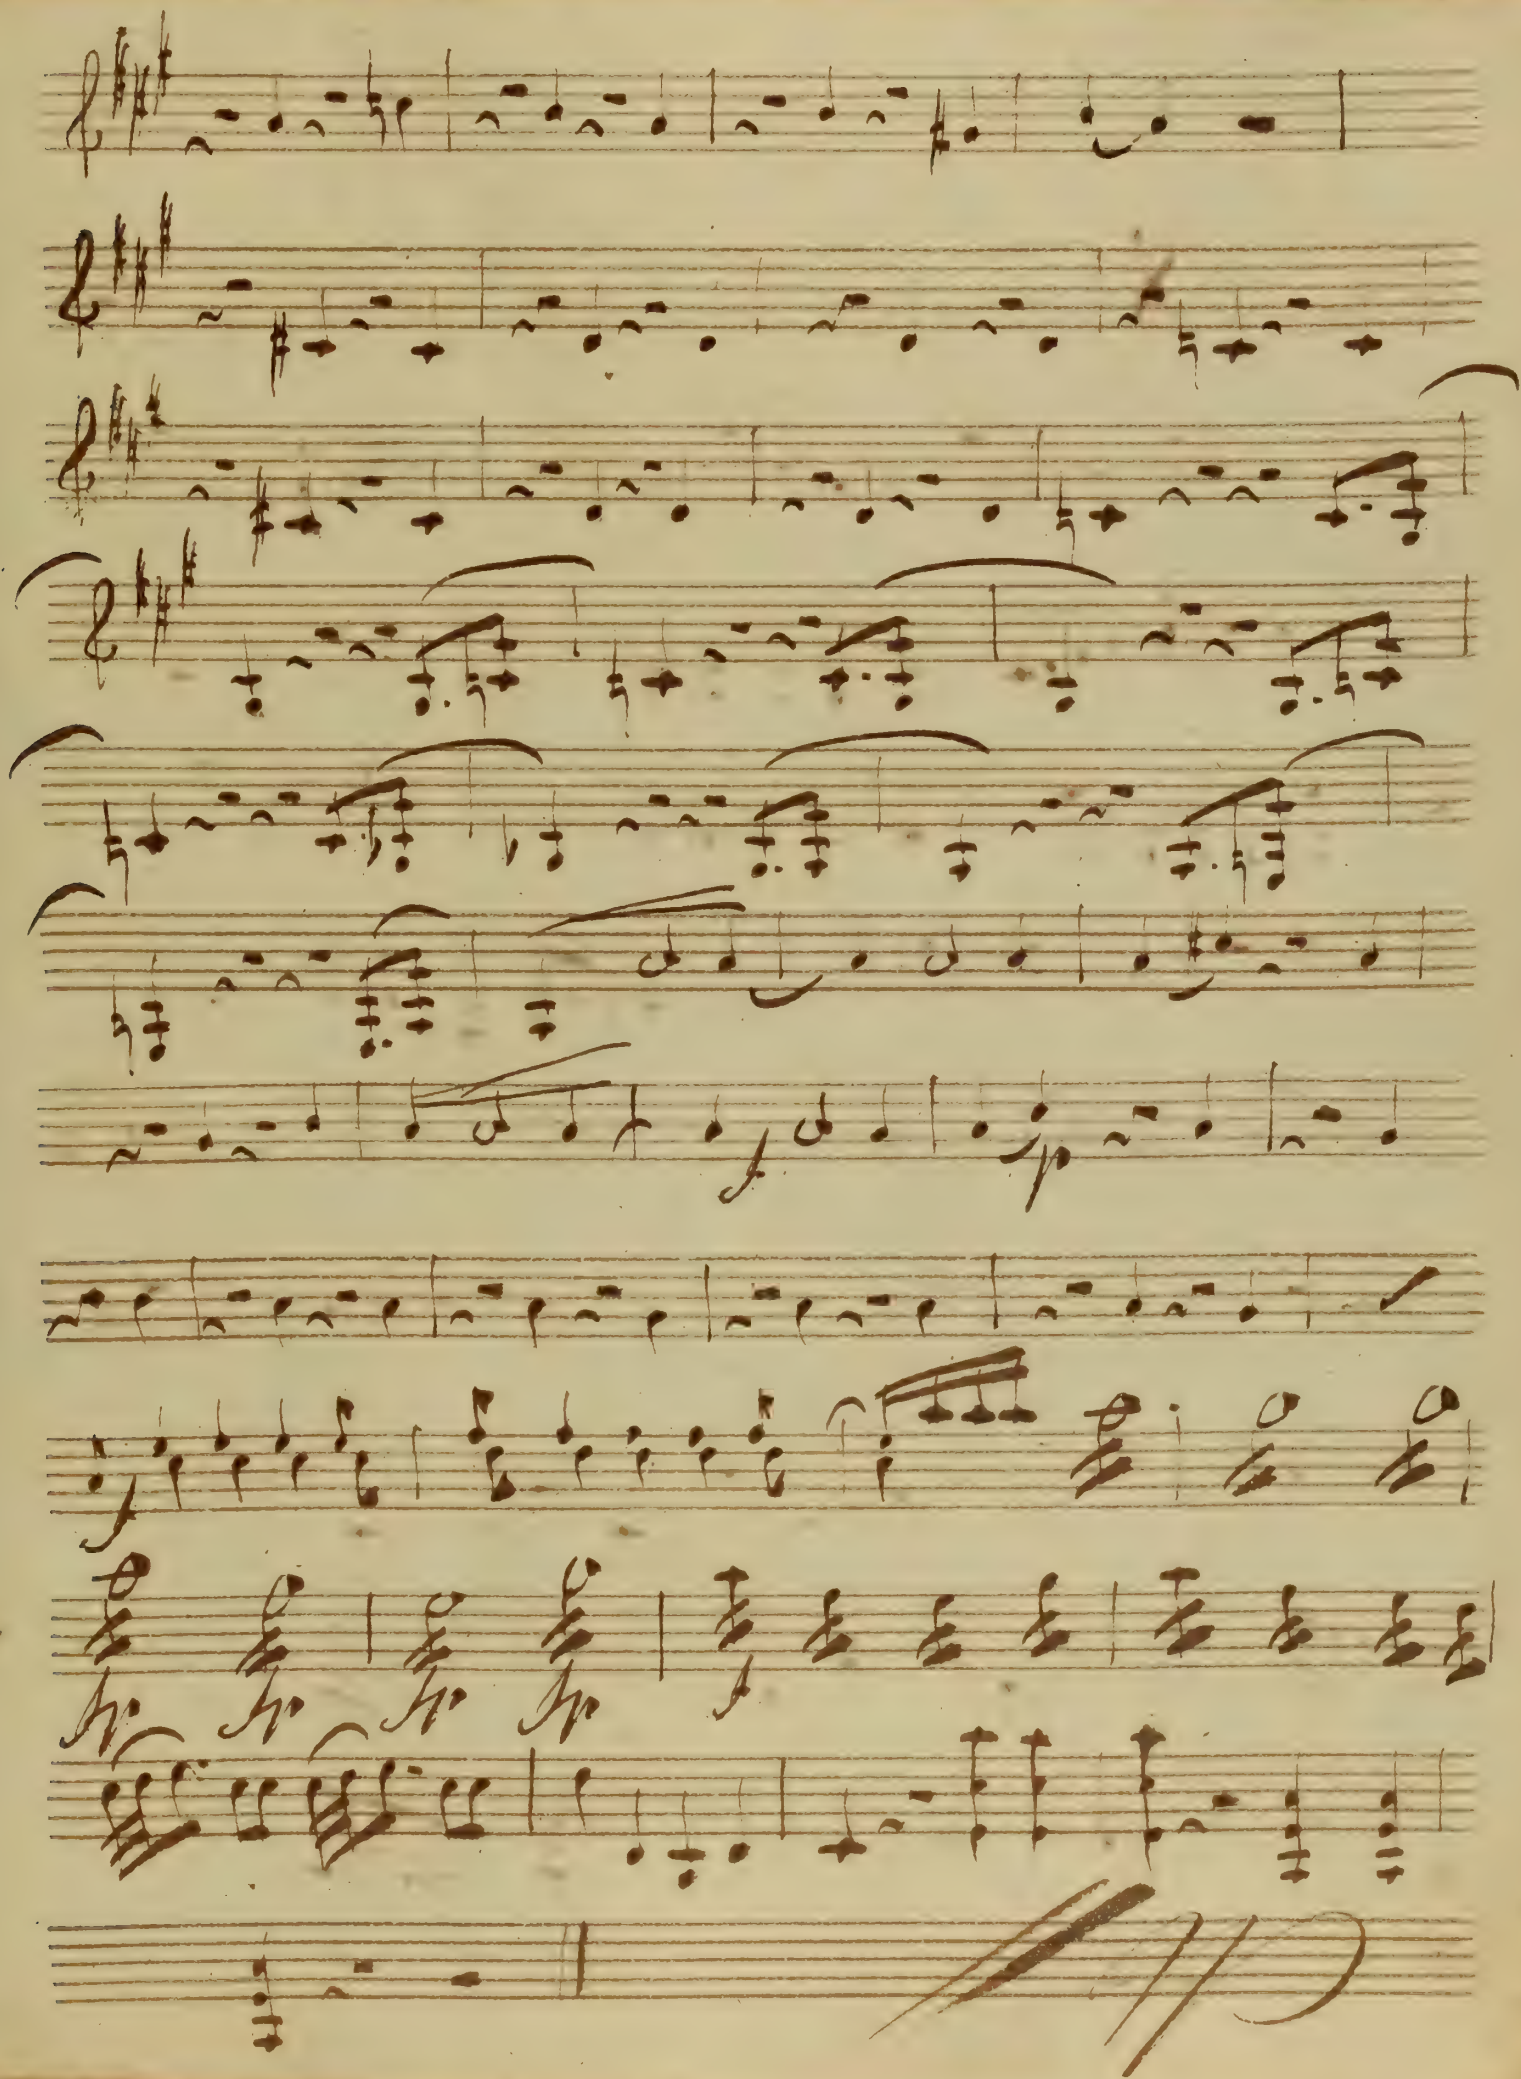 f p
f
fp fp fp fp f